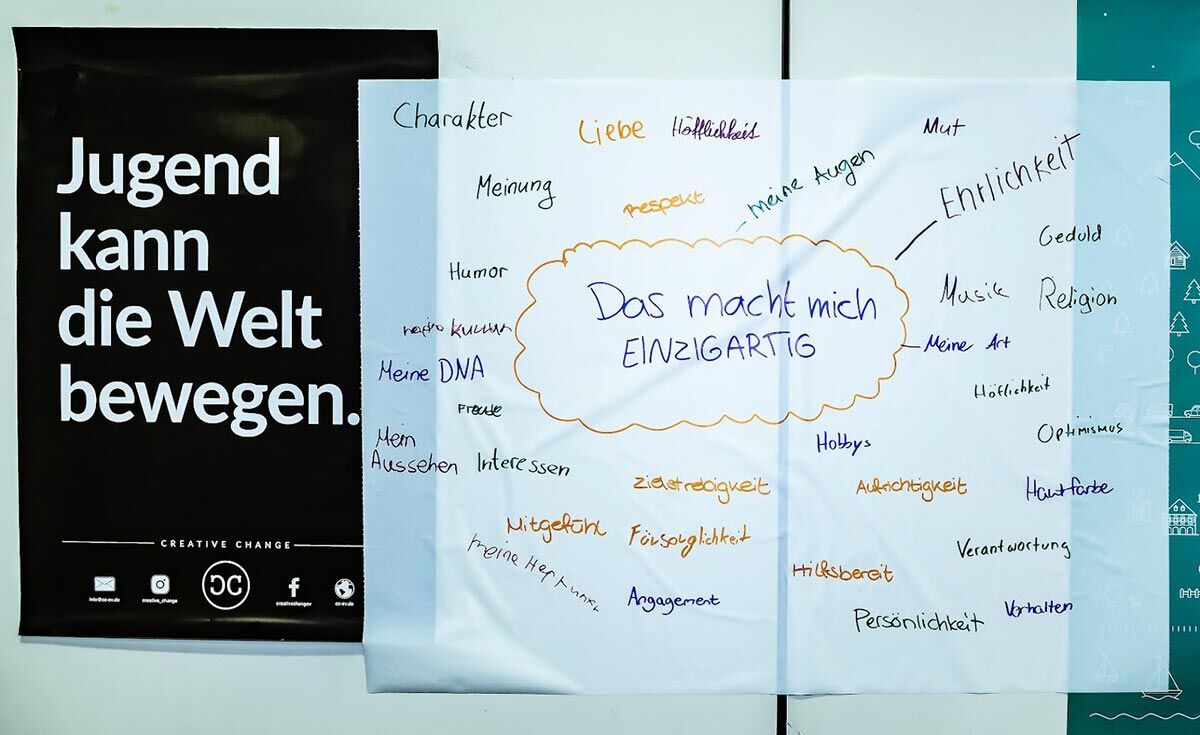 Jugend
kann
die Welt
bewegen.
CREATIVE CHANGE
info@cc-ev.de
creative_change
creativechangev
cc-ev.de
Charakter
Liebe
Höfflichkeit
Mut
Meinung
respekt
meine Augen
Ehrlichkeit
Geduld
Humor
Das macht mich
EINZIGARTIG
Musik
Religion
Kultur
Meine DNA
Meine Art
Freude
Höflichkeit
Mein
Aussehen
Interessen
Hobbys
Optimismus
Zielstrebigkeit
Aufrichtigkeit
Hautfarbe
Mitgefühl
Fürsorglichkeit
Verantwortung
meine Herkunft
Hilfsbereit
Angagement
Persönlichkeit
Verhalten